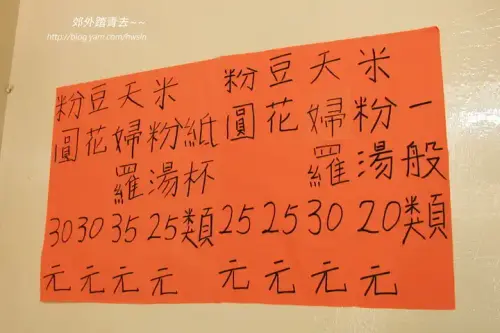 郊外踏青去~~
一般類
米粉湯20元
天婦羅30元
豆花25元
粉圓25元
紙杯類
米粉湯25元
天婦羅35元
豆花30元
粉圓30元